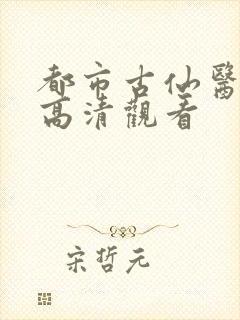 都市古仙醫
高清觀看
宋哲元